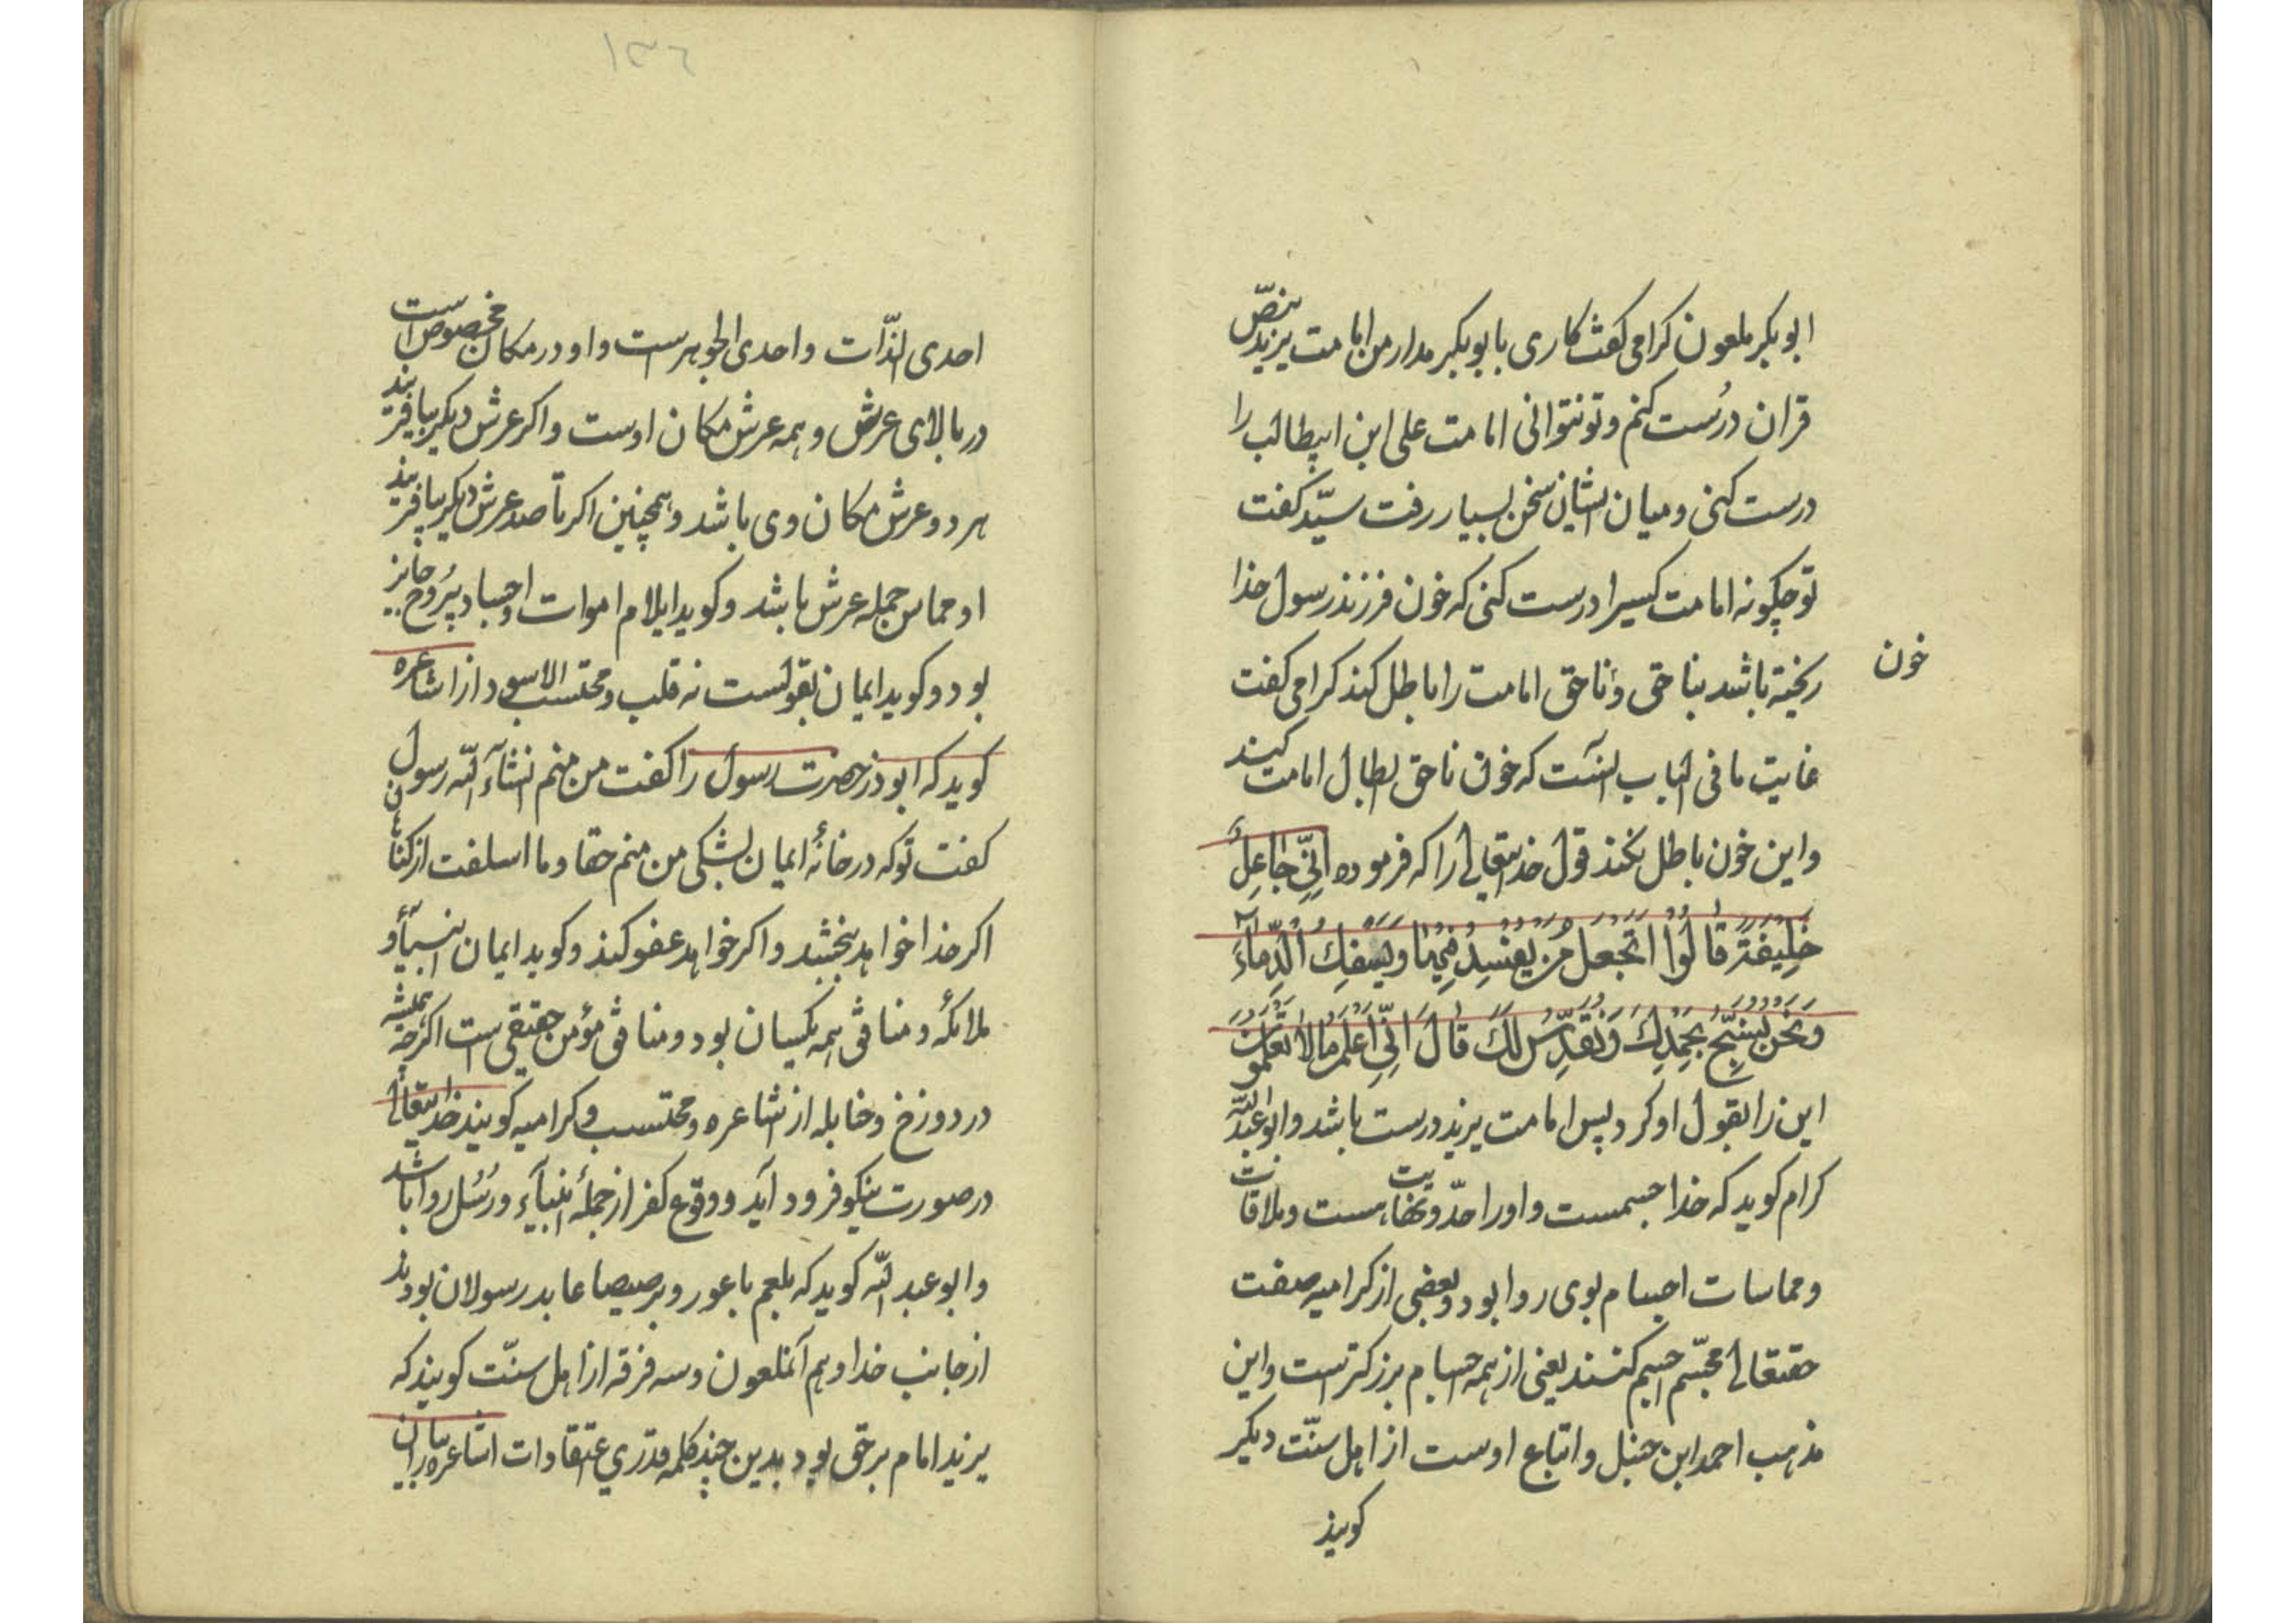 ابو بکر ملعون کرامی کفت کاری بابو بکر مدار من امامت یزید بنصّ
قران درُست کنم و تو نتوانی امامت علی ابن ابیطالب را
درست کنی و میان ایشان سخن بسیار رفت سیّد کفت
تو چکونه امامت کسیرا درست کنی که خون فرزند رسول خدا
خون
ریخته باشد بناحق و ناحق امامت را باطل کند کرامی کفت
غایت ما فی الباب آنست که خون ناحق ابطال امامت کند
و این خون باطل نکند قول خدایتعالی را که فرموده اِنِّی جَاعِلٌ
خَلِیفَةً قَالُوا اَتَجعَلُ مَن یُفسِدُ فِیهَا وَیَسفِکُ الدِّمَاءَ
وَنَحنُ نُسَبِّحُ بِحَمدِكَ وَنُقَدِّسُ لَكَ قَالَ اِنِّی اَعلَمُ مَا لَا تَعلَمُونَ
این را بقول او کرد پس امامت یزید درست باشد و ابو عبد اللّه
کرام کوید که خدا جسمست و او را حدّ و نهایت هست و ملاقات
و مماسات اجسام بوی روا بود و بعضی از کرامیه صفت
حقتعالی مجسّم اجسم کنند یعنی از همه اجسام بزرکترست و این
مذهب احمد ابن حنبل و اتباع اوست از اهل سنّت دیکر
کویند
١٣٦
احدی الذّات و احدی الجوهر است و او در مکان مخصوص است
در بالای عرش و همه عرش مکان اوست و اکر عرش دیکر بیافریند
هر دو عرش مکان وی باشد و همچنین اکر تا صد عرش دیکر بیافریند
او مماس جمله عرش باشد و کوید ایلام اموات و اجساد بی رُوح جایز
بود و کوید ایمان بقولست نه قلب و محتسب الاسود از اشاعره
کوید که ابوذر حضرت رسول را کفت من منم انشآء اللّه رسول
کفت تو که در خانهٔ ایمان بشکی من منم حقا و ما اسلفت از کناهان
اکر خدا خواهد ببخشد و اکر خواهد عفو کند و کوید ایمان انبیآء و
ملائکه و منافق همه یکسان بود و منافق مؤمن حقیقی است اکرچه همیشه
در دوزخ و حنابله از اشاعره و محتسب و کرامیه کویند خدایتعالی
در صورت نیکو فرود آید و وقوع کفر از جملهٔ انبیآء و رُسُل روا باشد
و ابو عبد اللّه کوید که بلعم باعور و برصیصا عابد رسولان بودند
از جانب خدا و هم آنملعون و سه فرقه از اهل سنّت کویند که
یزید امام بر حق بود بدین چند کلمه قدری اعتقادات اشاعره را بیان